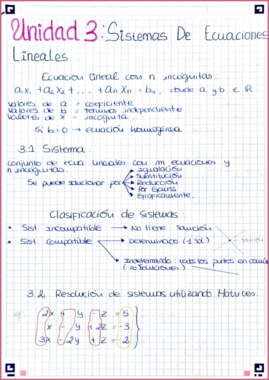 Unidad 3: Sistemas De Ecuaciones
Lineales
Ecuación lineal con n incógnitas:
a₁x₁ + a₂x₂ + ... + aₙxₙ = b₁, donde a y b ∈ ℝ
valores de a = coeficiente
valores de b = término independiente
valores de x = incógnita
Si b=0 → ecuación homogénea
3.1 Sistema
conjunto de ecua lineales con m ecuaciones y
n incógnitas.
Se puede solucionar por
Igualación
Sustitución
Reducción
Por Gauss
Gráficamente
Clasificación de sistemas:
Sist incompatible → No tiene solución
Sist. compatible → Determinado (1 sol)
solución
Indeterminado: todos los puntos en común
(∞ soluciones)
3.2 Resolución de sistemas utilizando Matrices
2x + y - z = 5
x - y + 2z = -3
3x - 2y + z = 2